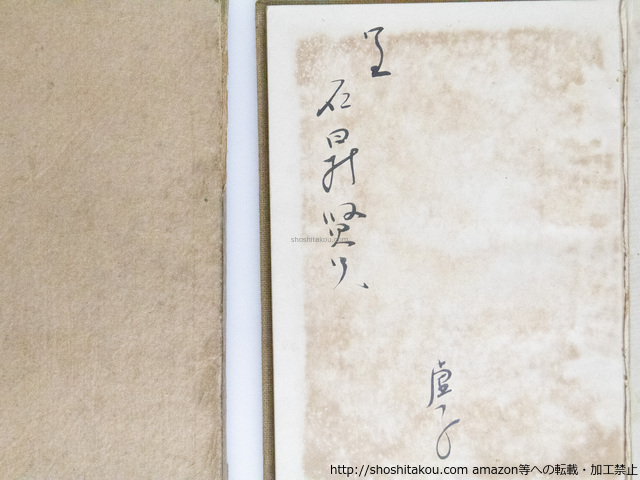 呈
石昇賢兄
虚子
shoshitakou.com
http://shoshitakou.com amazon等への転載・加工禁止